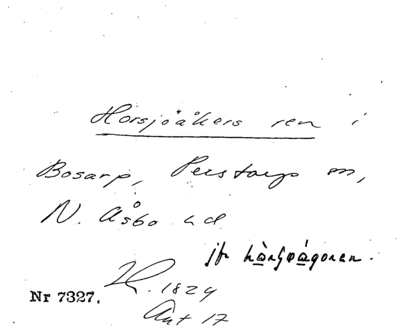 Horsjöåkers ren i
Bosarp, Perstorps sn,
N. Åsbo hd
jfr
1824
Nr 7327. Akt 17